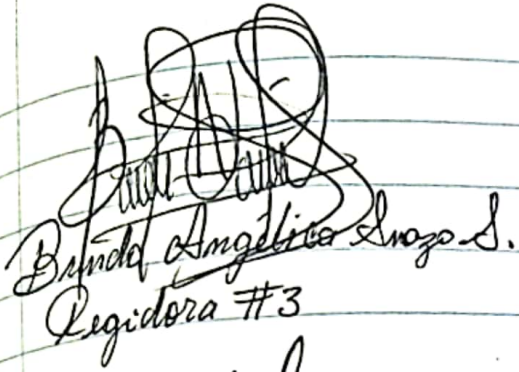 Brinda Angélica Suazo S.
Regidora #3